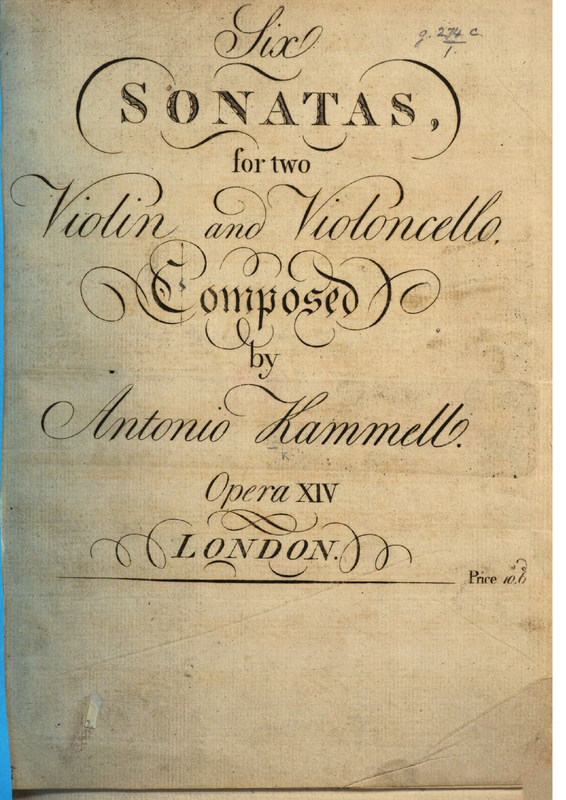 Six
g. 274 c.
1.
SONATAS,
for two
Violin and Violoncello.
Composed
by
Antonio Kammell.
K.
Opera XIV
LONDON.
Price 10.6